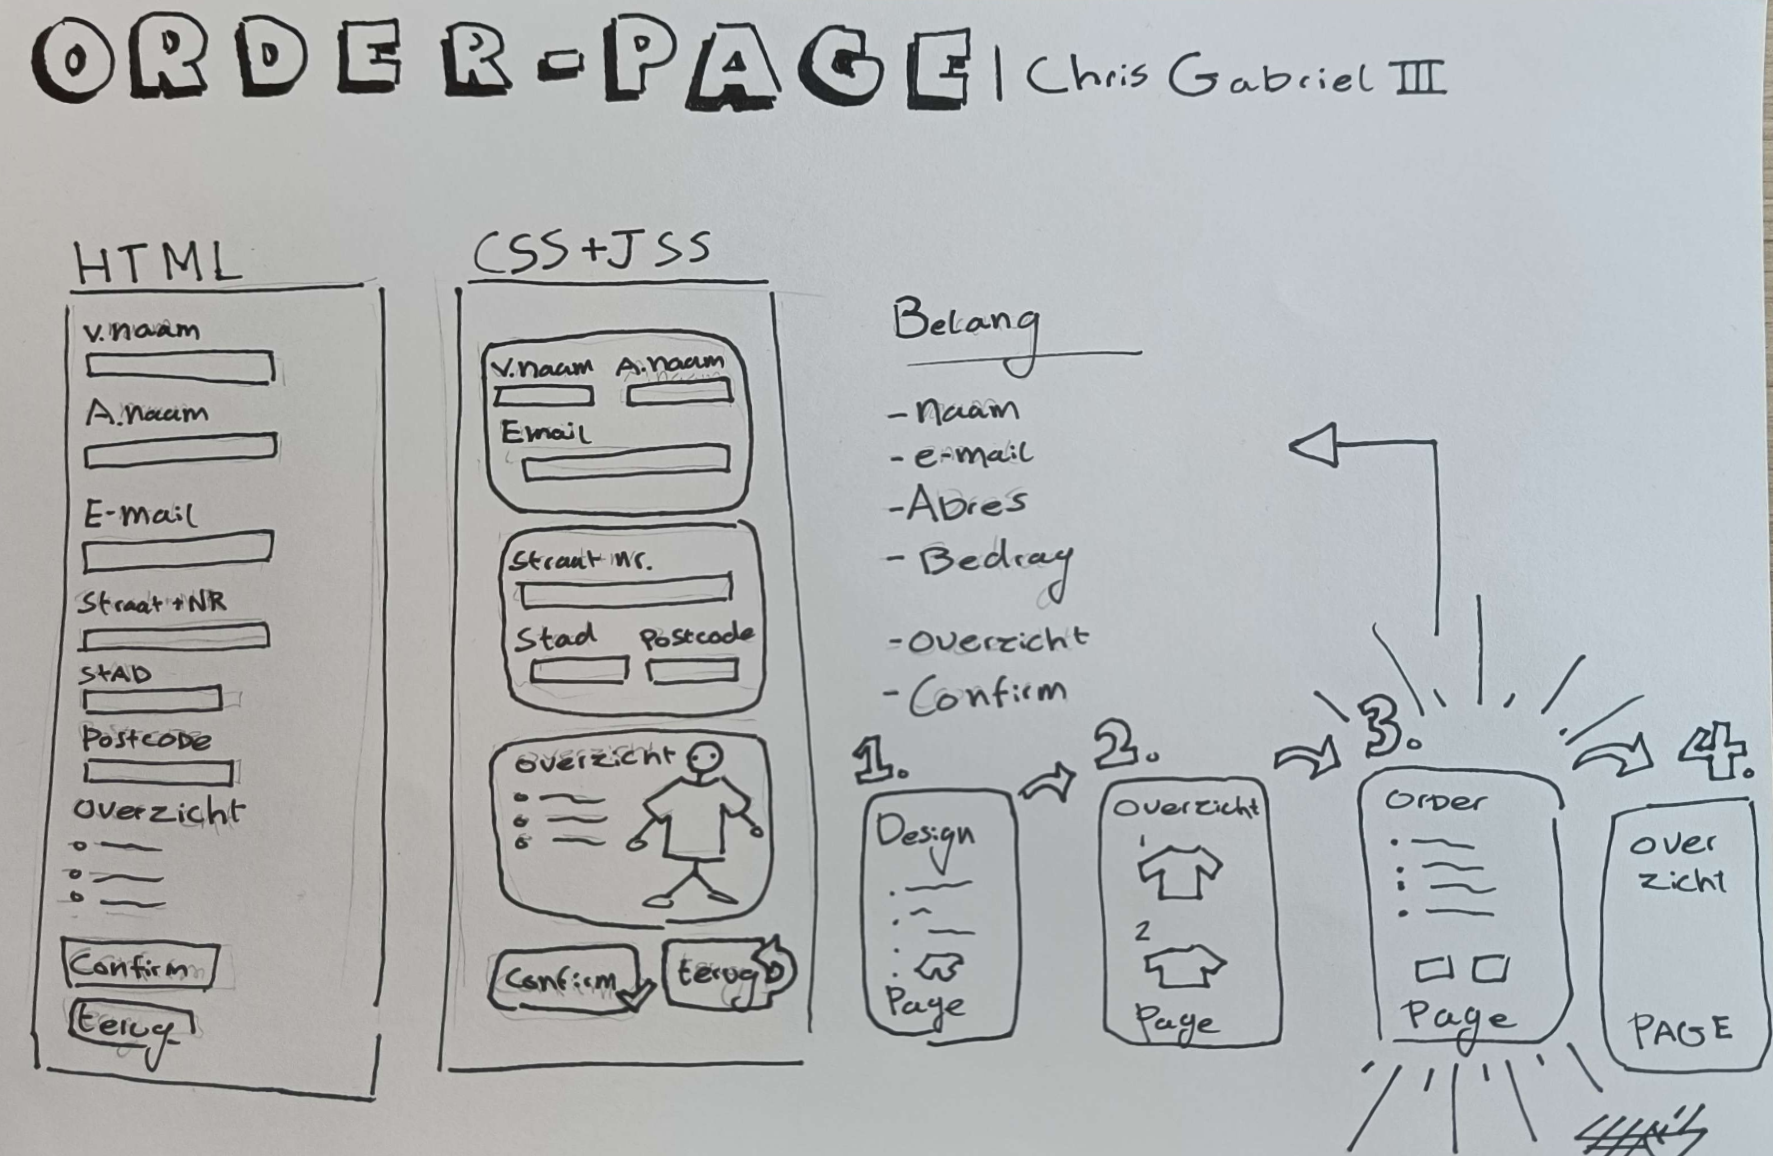 ORDER-PAGE | Chris Gabriel III
HTML
V.naam
A.naam
E-mail
Straat+NR
StAD
Postcode
Overzicht
Confirm
terug
CSS+JSS
V.naam A.naam
Email
Straat nr.
Stad Postcode
Overzicht
Confirm terug
Belang
-naam
-e-mail
-Adres
-Bedrag
-Overzicht
-Confirm
1.
Design
Page
2.
Overzicht
1
2
Page
3.
Order
Page
4.
Over
zicht
PAGE